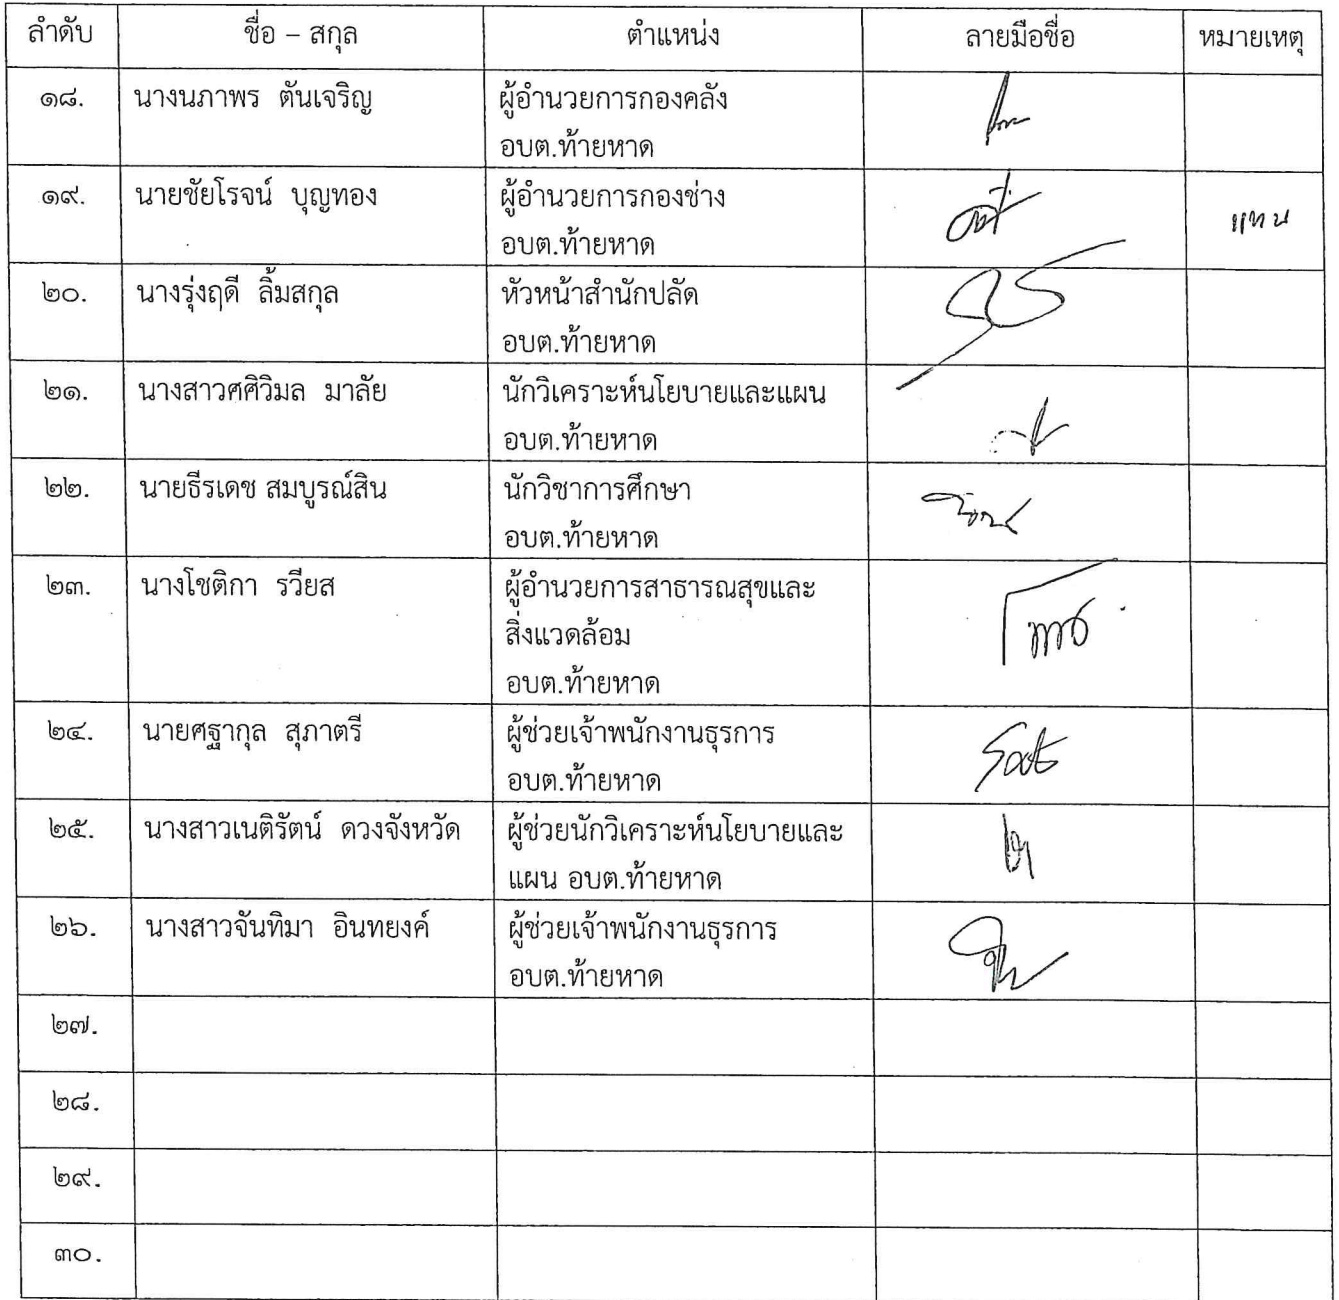 ลำดับ ชื่อ – สกุล ตำแหน่ง ลายมือชื่อ หมายเหตุ
๑๘. นางนภาพร ตันเจริญ ผู้อำนวยการกองคลัง
อบต.ท้ายหาด
๑๙. นายชัยโรจน์ บุญทอง ผู้อำนวยการกองช่าง แทน
อบต.ท้ายหาด
๒๐. นางรุ่งฤดี ลิ้มสกุล หัวหน้าสำนักปลัด
อบต.ท้ายหาด
๒๑. นางสาวศศิวิมล มาลัย นักวิเคราะห์นโยบายและแผน
อบต.ท้ายหาด
๒๒. นายธีรเดช สมบูรณ์สิน นักวิชาการศึกษา
อบต.ท้ายหาด
๒๓. นางโชติกา รวียส ผู้อำนวยการสาธารณสุขและ
สิ่งแวดล้อม
อบต.ท้ายหาด
๒๔. นายศฐากุล สุภาตรี ผู้ช่วยเจ้าพนักงานธุรการ
อบต.ท้ายหาด
๒๕. นางสาวเนติรัตน์ ดวงจังหวัด ผู้ช่วยนักวิเคราะห์นโยบายและ
แผน อบต.ท้ายหาด
๒๖. นางสาวจันทิมา อินทยงค์ ผู้ช่วยเจ้าพนักงานธุรการ
อบต.ท้ายหาด
๒๗.
๒๘.
๒๙.
๓๐.